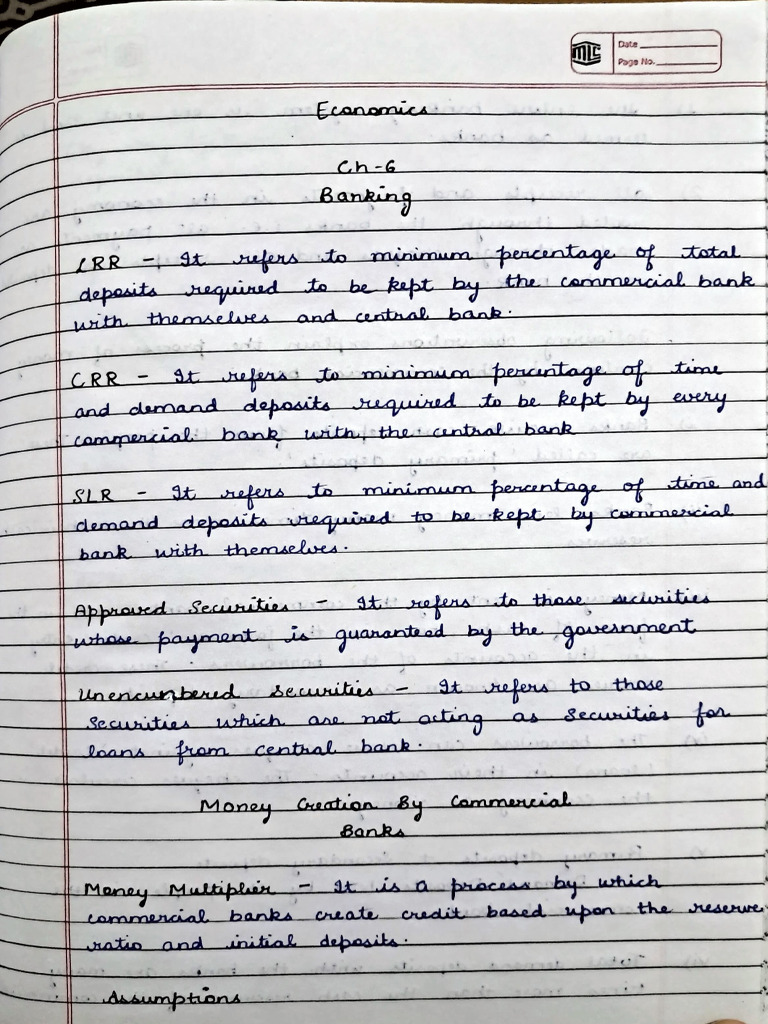 MLC
Date
Page No.
Economics
Ch-6
Banking
LRR - It refers to minimum percentage of total
deposits required to be kept by the commercial bank
with themselves and central bank.
CRR - It refers to minimum percentage of time
and demand deposits required to be kept by every
commercial bank with the central bank
SLR - It refers to minimum percentage of time and
demand deposits required to be kept by commercial
bank with themselves.
Approved Securities - It refers to those securities
whose payment is guaranteed by the government
Unencumbered Securities - It refers to those
Securities which are not acting as Securities for
loans from central bank.
Money Creation By Commercial
Banks
Money Multiplier - It is a process by which
commercial banks create credit based upon the reserve
ratio and initial deposits.
Assumptions